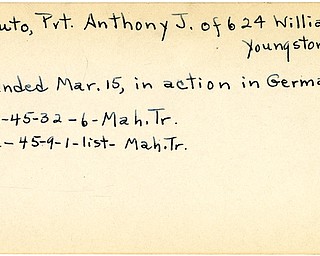 uto, Pvt. Anthony J. of 624 Willia
Youngston
nded Mar. 15, in action in Germa
-45-32-6-Mah. Tr.
-45-9-1-list- Mah. Tr.